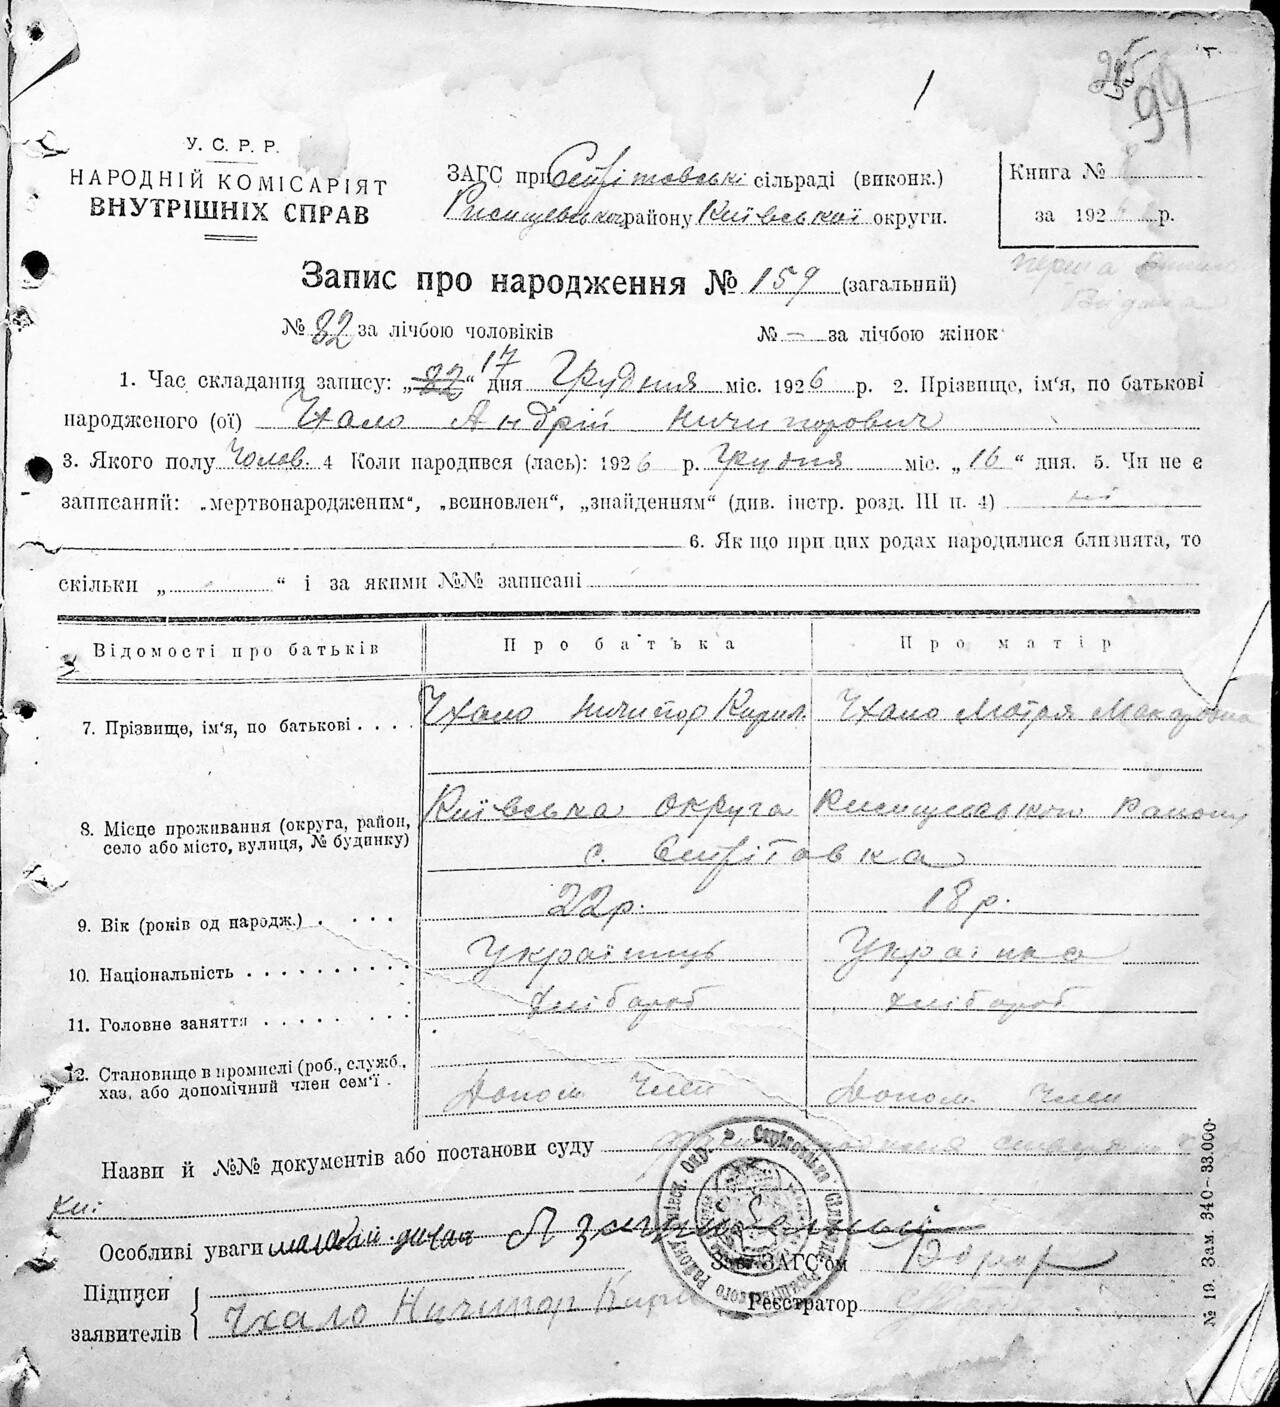 99
У. С. Р. Р.
НАРОДНІЙ КОМІСАРІЯТ
ВНУТРІШНІХ СПРАВ
ЗАГС при сільраді (виконк.)
району Київської округи.
Книга №
за 192 р.
перша
Видана
Запис про народження № 159 (загальний)
№ 82 за лічбою чоловіків № — за лічбою жінок
1. Час складання запису: „22“ 17 дня Грудня міс. 1926 р. 2. Прізвище, ім‘я, по батькові
народженого (ої) Чхало Андрій Ничипорович
3. Якого полу Чолов. 4 Коли народився (лась): 1926 р. Грудня міс. „16“ дня. 5. Чи не є
записаний: „мертвонародженим“, „всиновлен“, „знайденням“ (див. інстр. розд. III п. 4) ні
6. Якщо при цих родах народилися близнята, то
скільки „ “ і за якими №№ записані
Відомості про батьків Про батька Про матір
7. Прізвище, ім‘я, по батькові . . . . Чхало Ничипор Кирил. Чхало Мотря Макаровна
8. Місце проживання (округа, район,
село або місто, вулиця, № будинку)
Київська округа району
с.
9. Вік (років од народж.) . . . . 22 р. 18 р.
10. Національність . . . . . . . . . . Українець Українка
11. Головне заняття . . . . . . . . хлібороб хлібороб
12. Становище в промислі (роб., служб.,
хаз. або допомічний член сем‘ї .
Допом. Член Допом. Член
Назви й №№ документів або постанови суду
Особливі уваги
Зав. ЗАГС‘ом
Підписи
заявителів
Чхало Ничипор Кирил
Реєстратор
№ 19. Зам. 340—33.000.